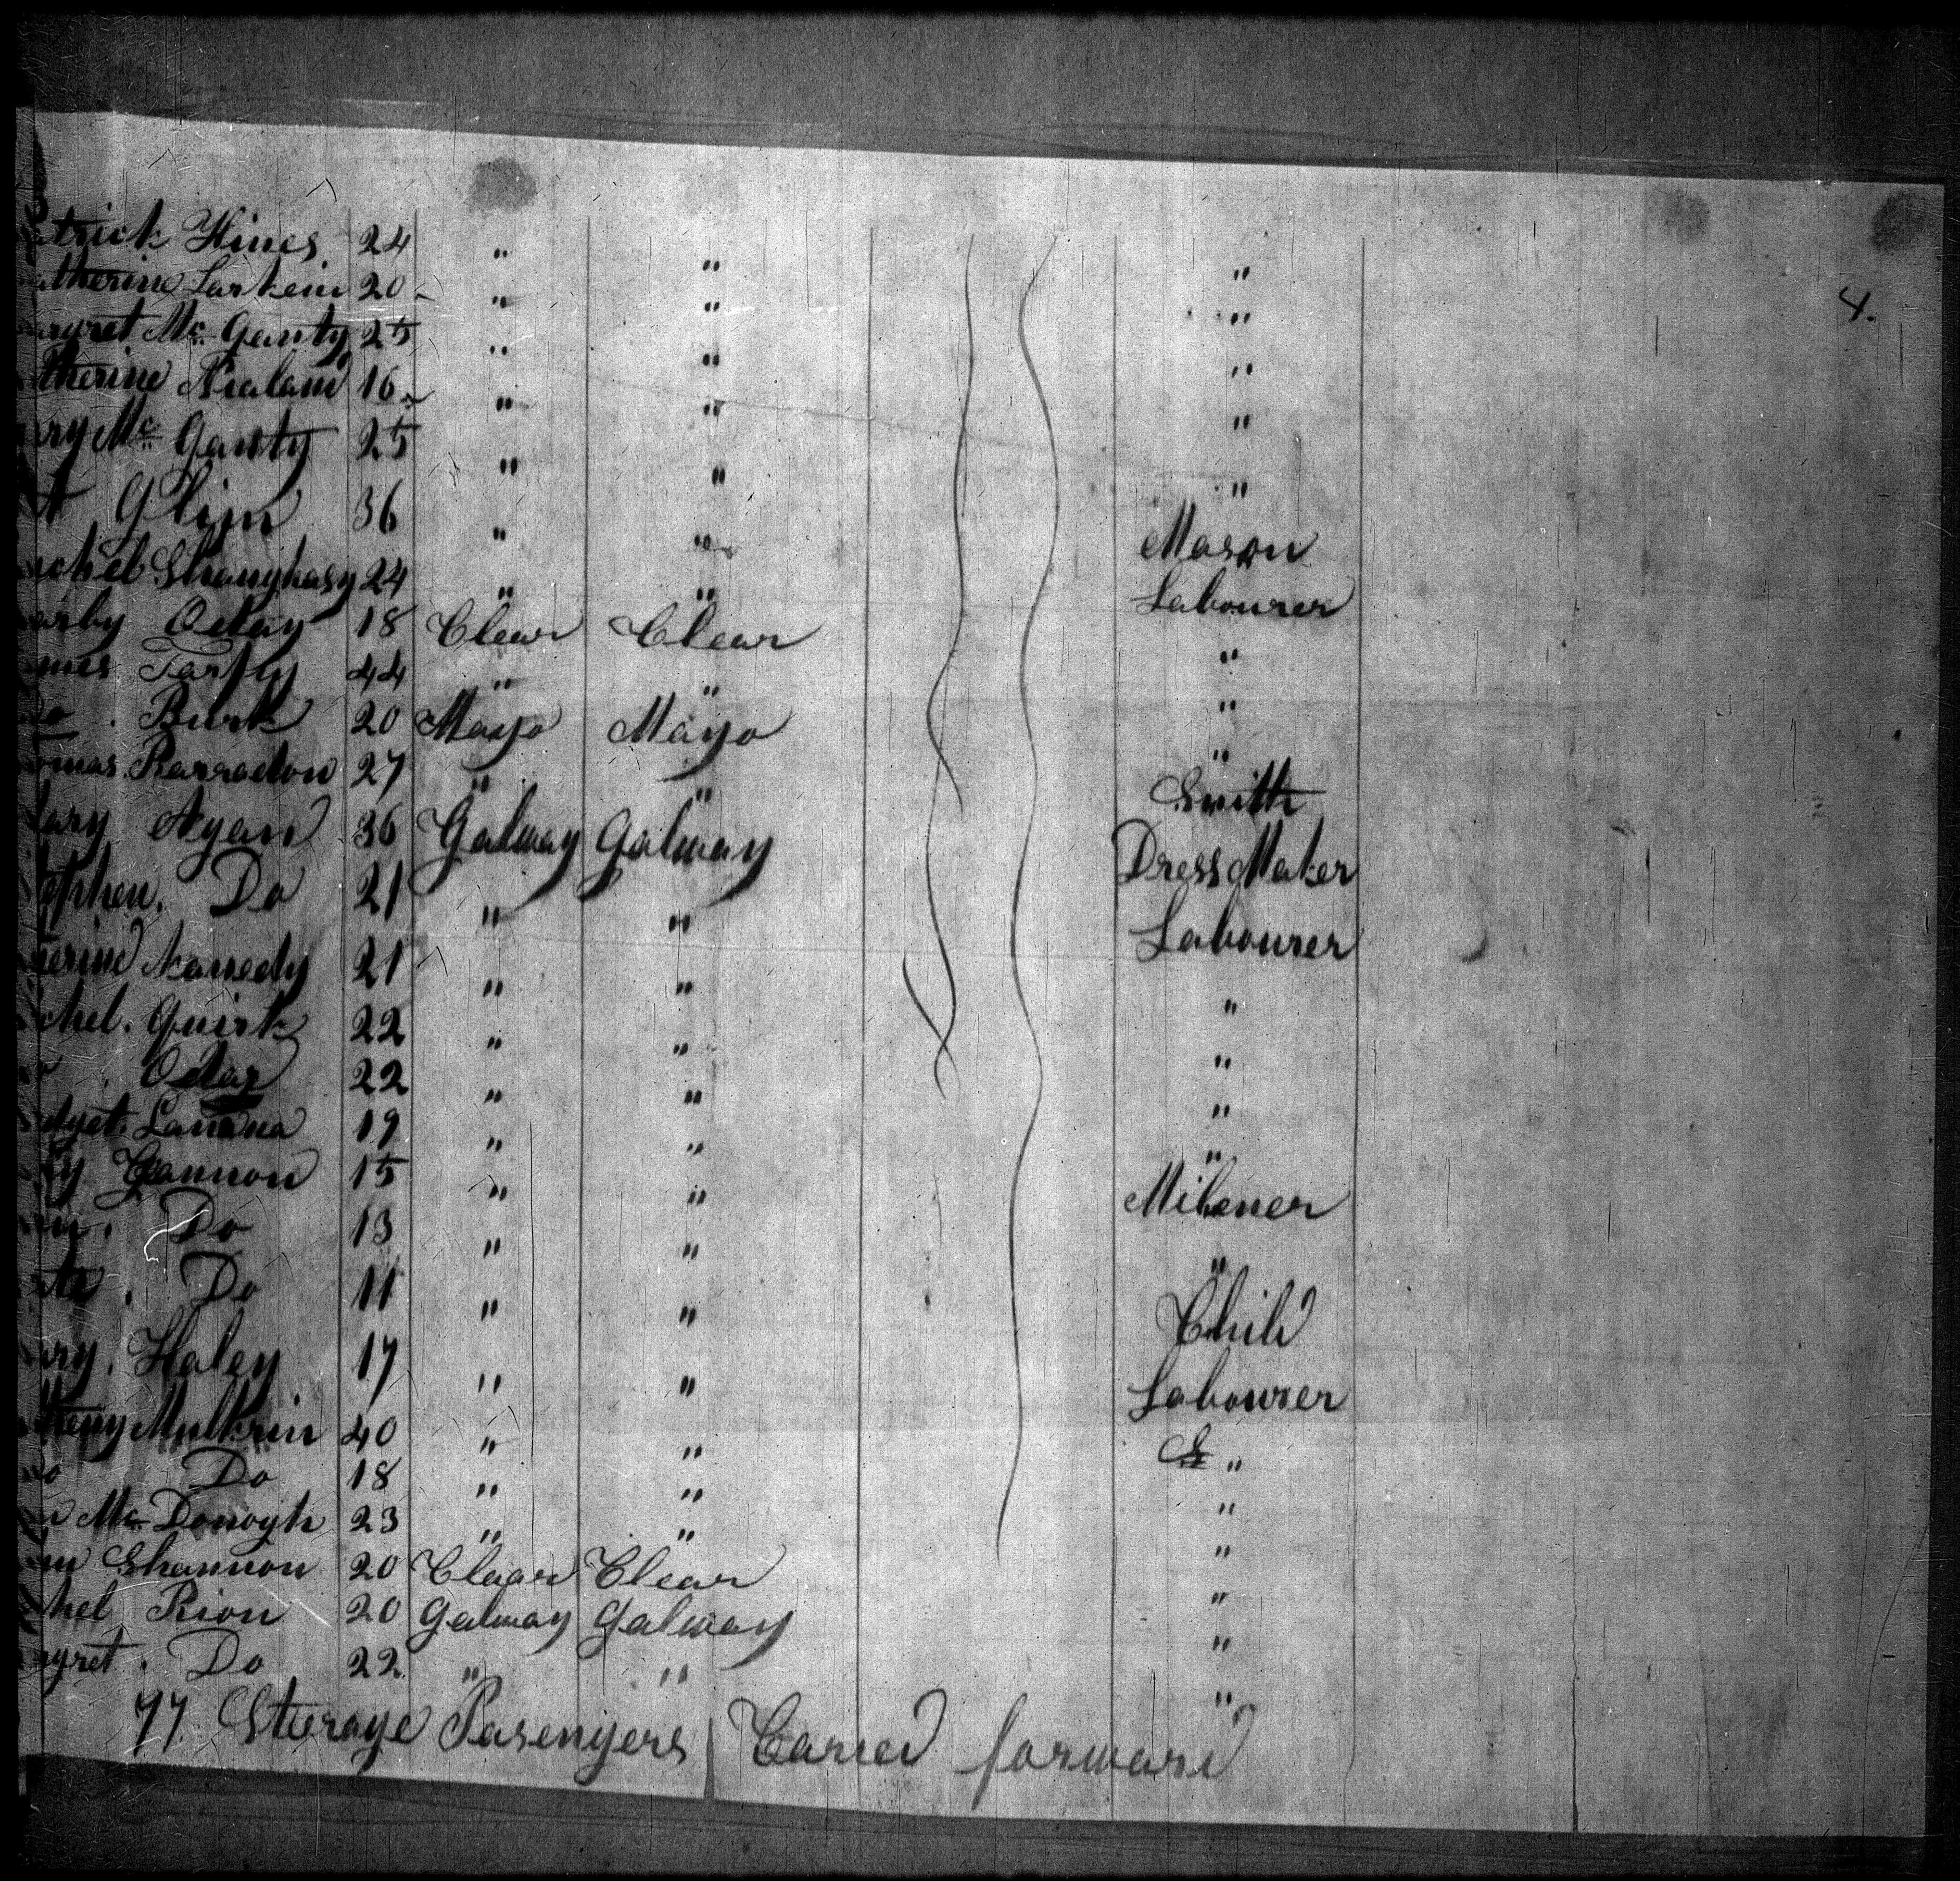 4.
trick Hines 24 " " "
therine Larkein 20 " " "
rgret Mc Ganty 25 " " "
therine 16 " " "
ry Mc Ganty 25 " " "
t Glinn 36 " " Mason
ichel Shaughasy 24 " " Labourer
arby Oday 18 Clear Clear "
mes Tarfy 44 " " "
do Burk 20 Mayo Mayo "
omas Barradon 27 " " Smith
ary Ryan 36 Galway Galway Dress Maker
tephen. Do 21 " " Labourer
therine Kanedy 21 " " "
chel. Quirk 22 " " "
Oday 22 " " "
dget. 19 " " "
ry Gannon 15 " " Milener
nn. Do 13 " " "
Do 11 " " Child
ary. Haley 17 " " Labourer
Mulkrin 40 " " "
do Do 18 " " "
n Mc Donogh 23 " " "
nn Shannon 20 Claar Clear "
chel Rion 20 Galway Galway "
rgret. Do 22 " " "
77 Sterage Pasengers Caried forward